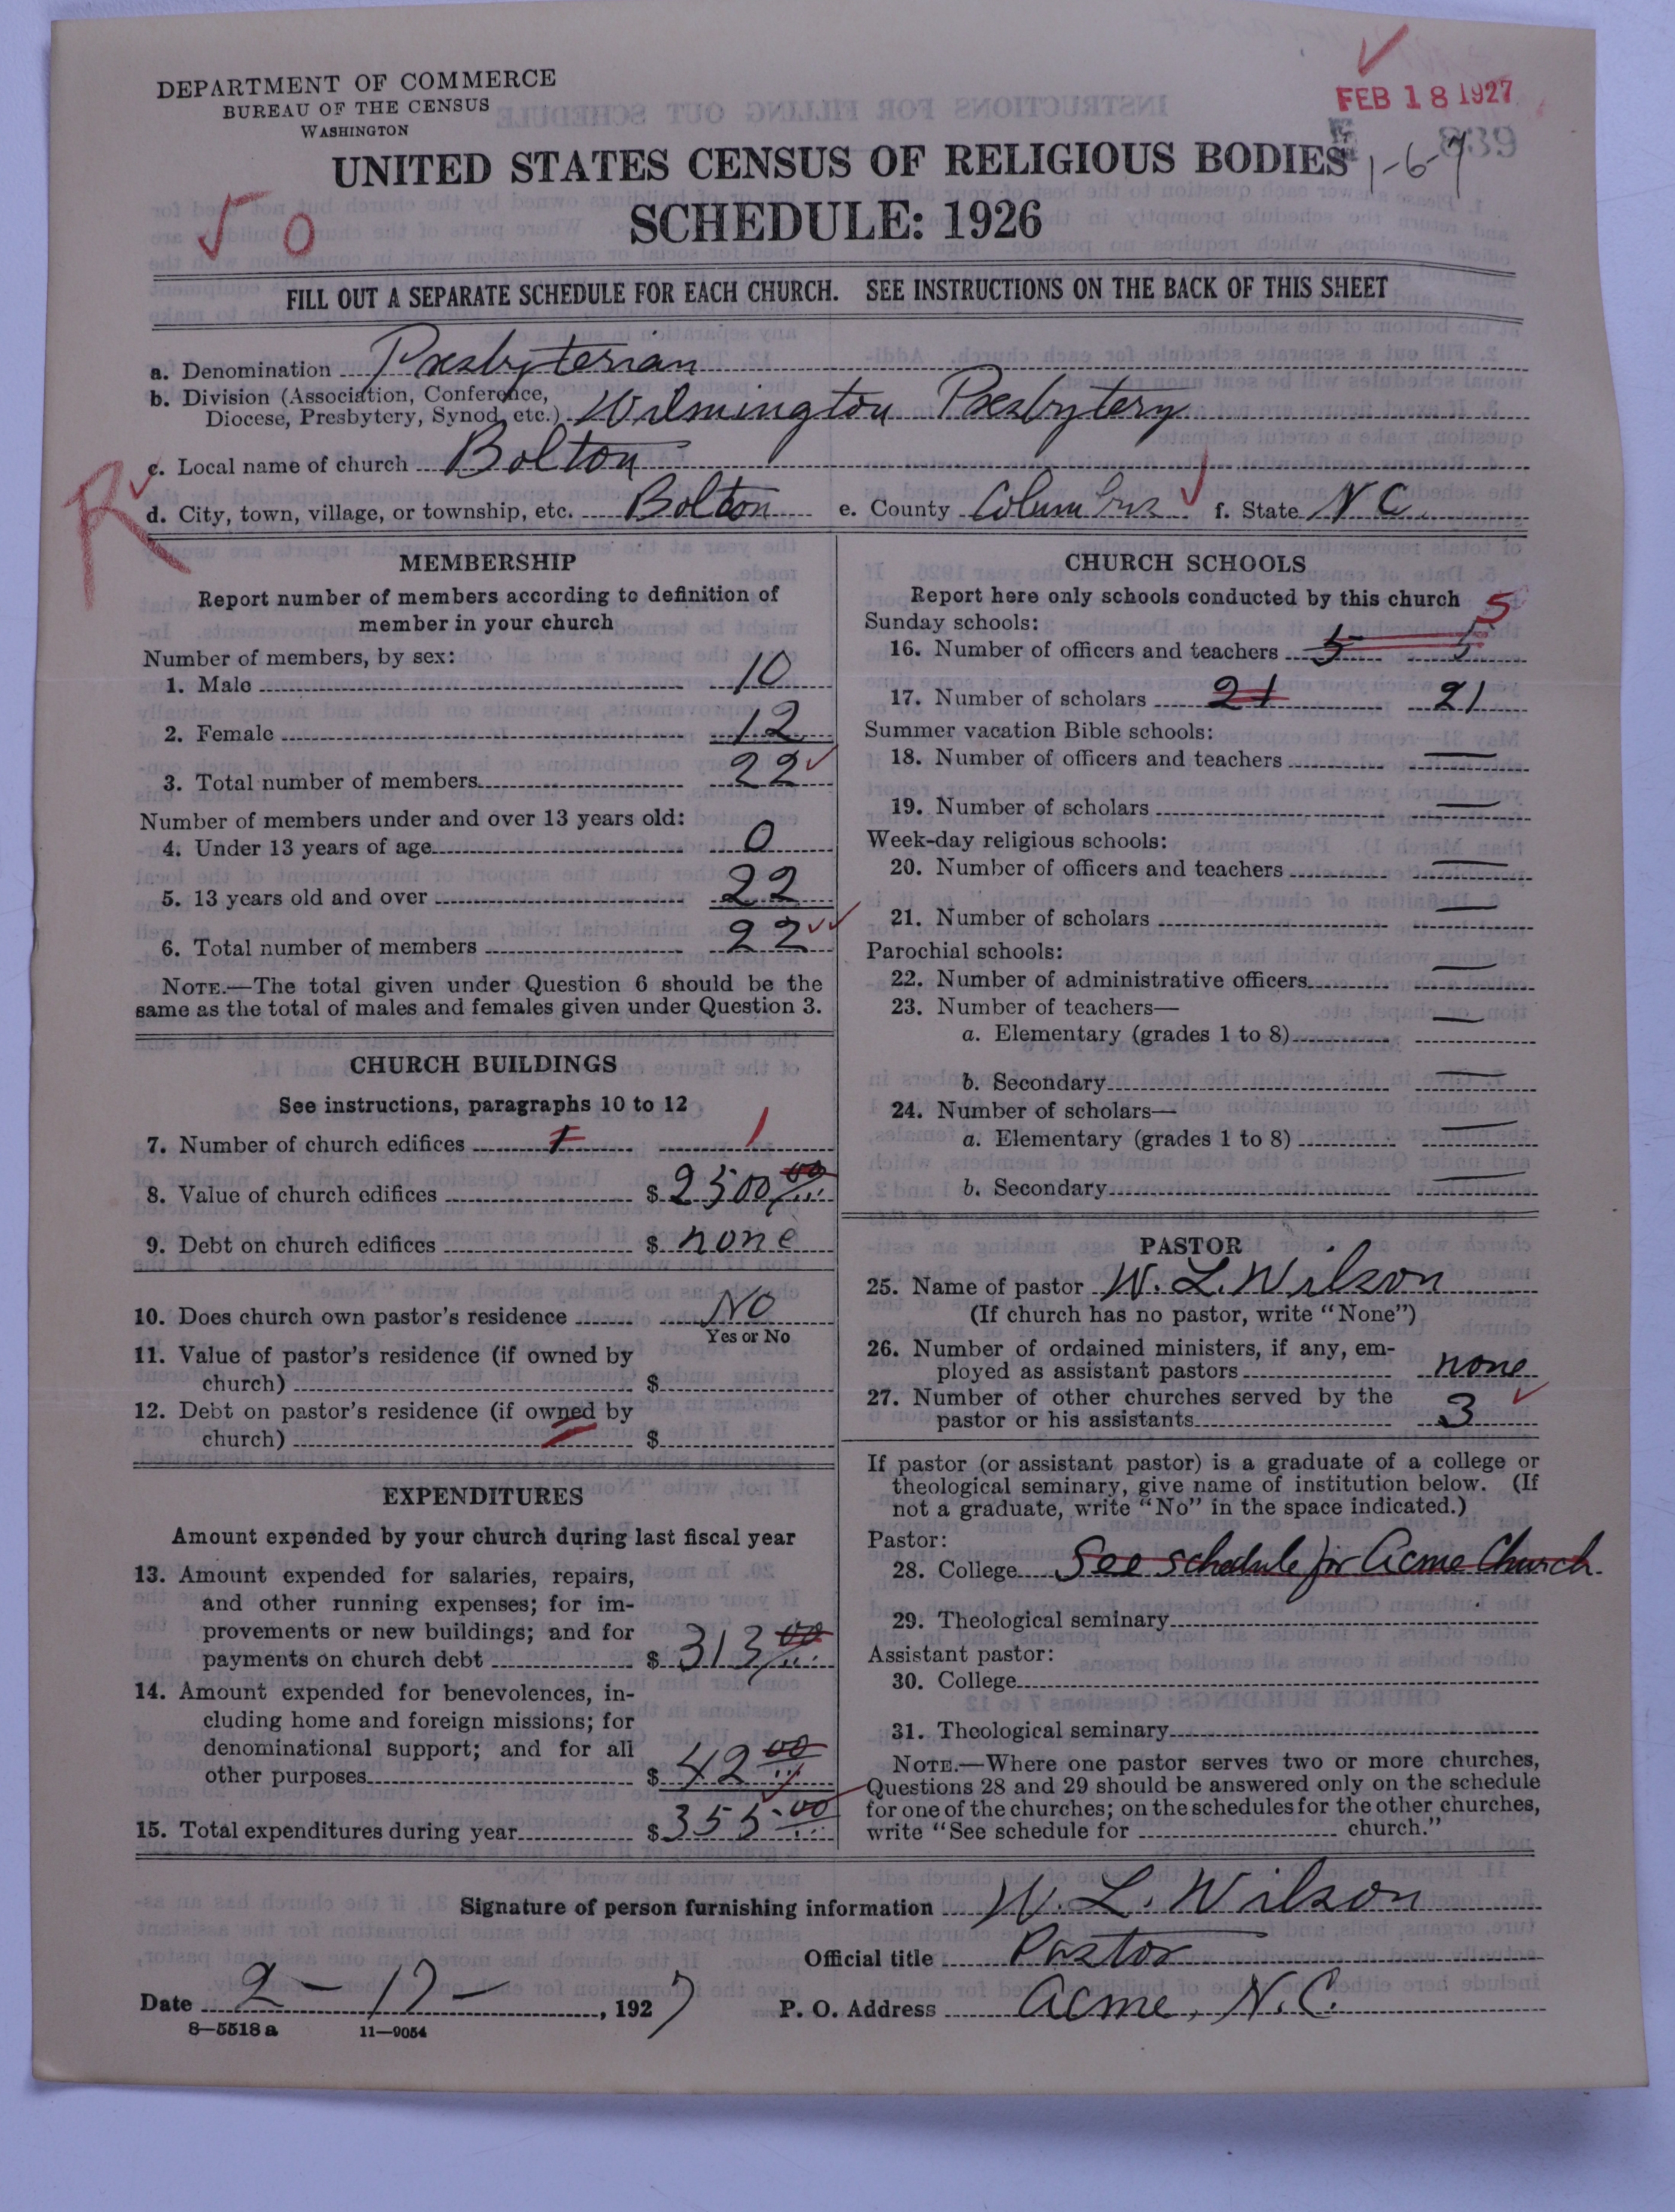 DEPARTMENT OF COMMERCE
BUREAU OF THE CENSUS
WASHINGTON
FEB 18 1927
839
1-6-7
UNITED STATES CENSUS OF RELIGIOUS BODIES
SCHEDULE: 1926
FILL OUT A SEPARATE SCHEDULE FOR EACH CHURCH. SEE INSTRUCTIONS ON THE BACK OF THIS SHEET
a. Denomination Presbyterian
b. Division (Association, Conference,
Diocese, Presbytery, Synod, etc.) Wilmington Presbytery
R
c. Local name of church Bolton
d. City, town, village, or township, etc. Bolton e. County Columbus f. State N C.
MEMBERSHIP
Report number of members according to definition of
member in your church
Number of members, by sex:
1. Male 10
2. Female 12
3. Total number of members 22
Number of members under and over 13 years old:
4. Under 13 years of age 0
5. 13 years old and over 22
6. Total number of members 22
NOTE.—The total given under Question 6 should be the
same as the total of males and females given under Question 3.
CHURCH BUILDINGS
See instructions, paragraphs 10 to 12
7. Number of church edifices 1 1
8. Value of church edifices $ 2500 00
9. Debt on church edifices $ none
10. Does church own pastor's residence NO
Yes or No
11. Value of pastor's residence (if owned by
church) $
12. Debt on pastor's residence (if owned by
church) $
EXPENDITURES
Amount expended by your church during last fiscal year
13. Amount expended for salaries, repairs,
and other running expenses; for im-
provements or new buildings; and for
payments on church debt $ 313 00
14. Amount expended for benevolences, in-
cluding home and foreign missions; for
denominational support; and for all
other purposes $ 42 00
15. Total expenditures during year $ 355-00
CHURCH SCHOOLS
Report here only schools conducted by this church
Sunday schools: 5
16. Number of officers and teachers 5 5
17. Number of scholars 21 21
Summer vacation Bible schools:
18. Number of officers and teachers —
19. Number of scholars —
Week-day religious schools:
20. Number of officers and teachers —
21. Number of scholars —
Parochial schools:
22. Number of administrative officers —
23. Number of teachers—
a. Elementary (grades 1 to 8) —
b. Secondary —
24. Number of scholars—
a. Elementary (grades 1 to 8) —
b. Secondary —
PASTOR
25. Name of pastor W. L. Wilson
(If church has no pastor, write "None")
26. Number of ordained ministers, if any, em-
ployed as assistant pastors none
27. Number of other churches served by the
pastor or his assistants 3
If pastor (or assistant pastor) is a graduate of a college or
theological seminary, give name of institution below. (If
not a graduate, write "No" in the space indicated.)
Pastor:
28. College See schedule for Acme Church.
29. Theological seminary
Assistant pastor:
30. College
31. Theological seminary
NOTE.—Where one pastor serves two or more churches,
Questions 28 and 29 should be answered only on the schedule
for one of the churches; on the schedules for the other churches,
write "See schedule for church."
Signature of person furnishing information W. L. Wilson
Official title Pastor
Date 2-17-, 1927 P. O. Address Acme, N.C.
8-5518a 11-9054